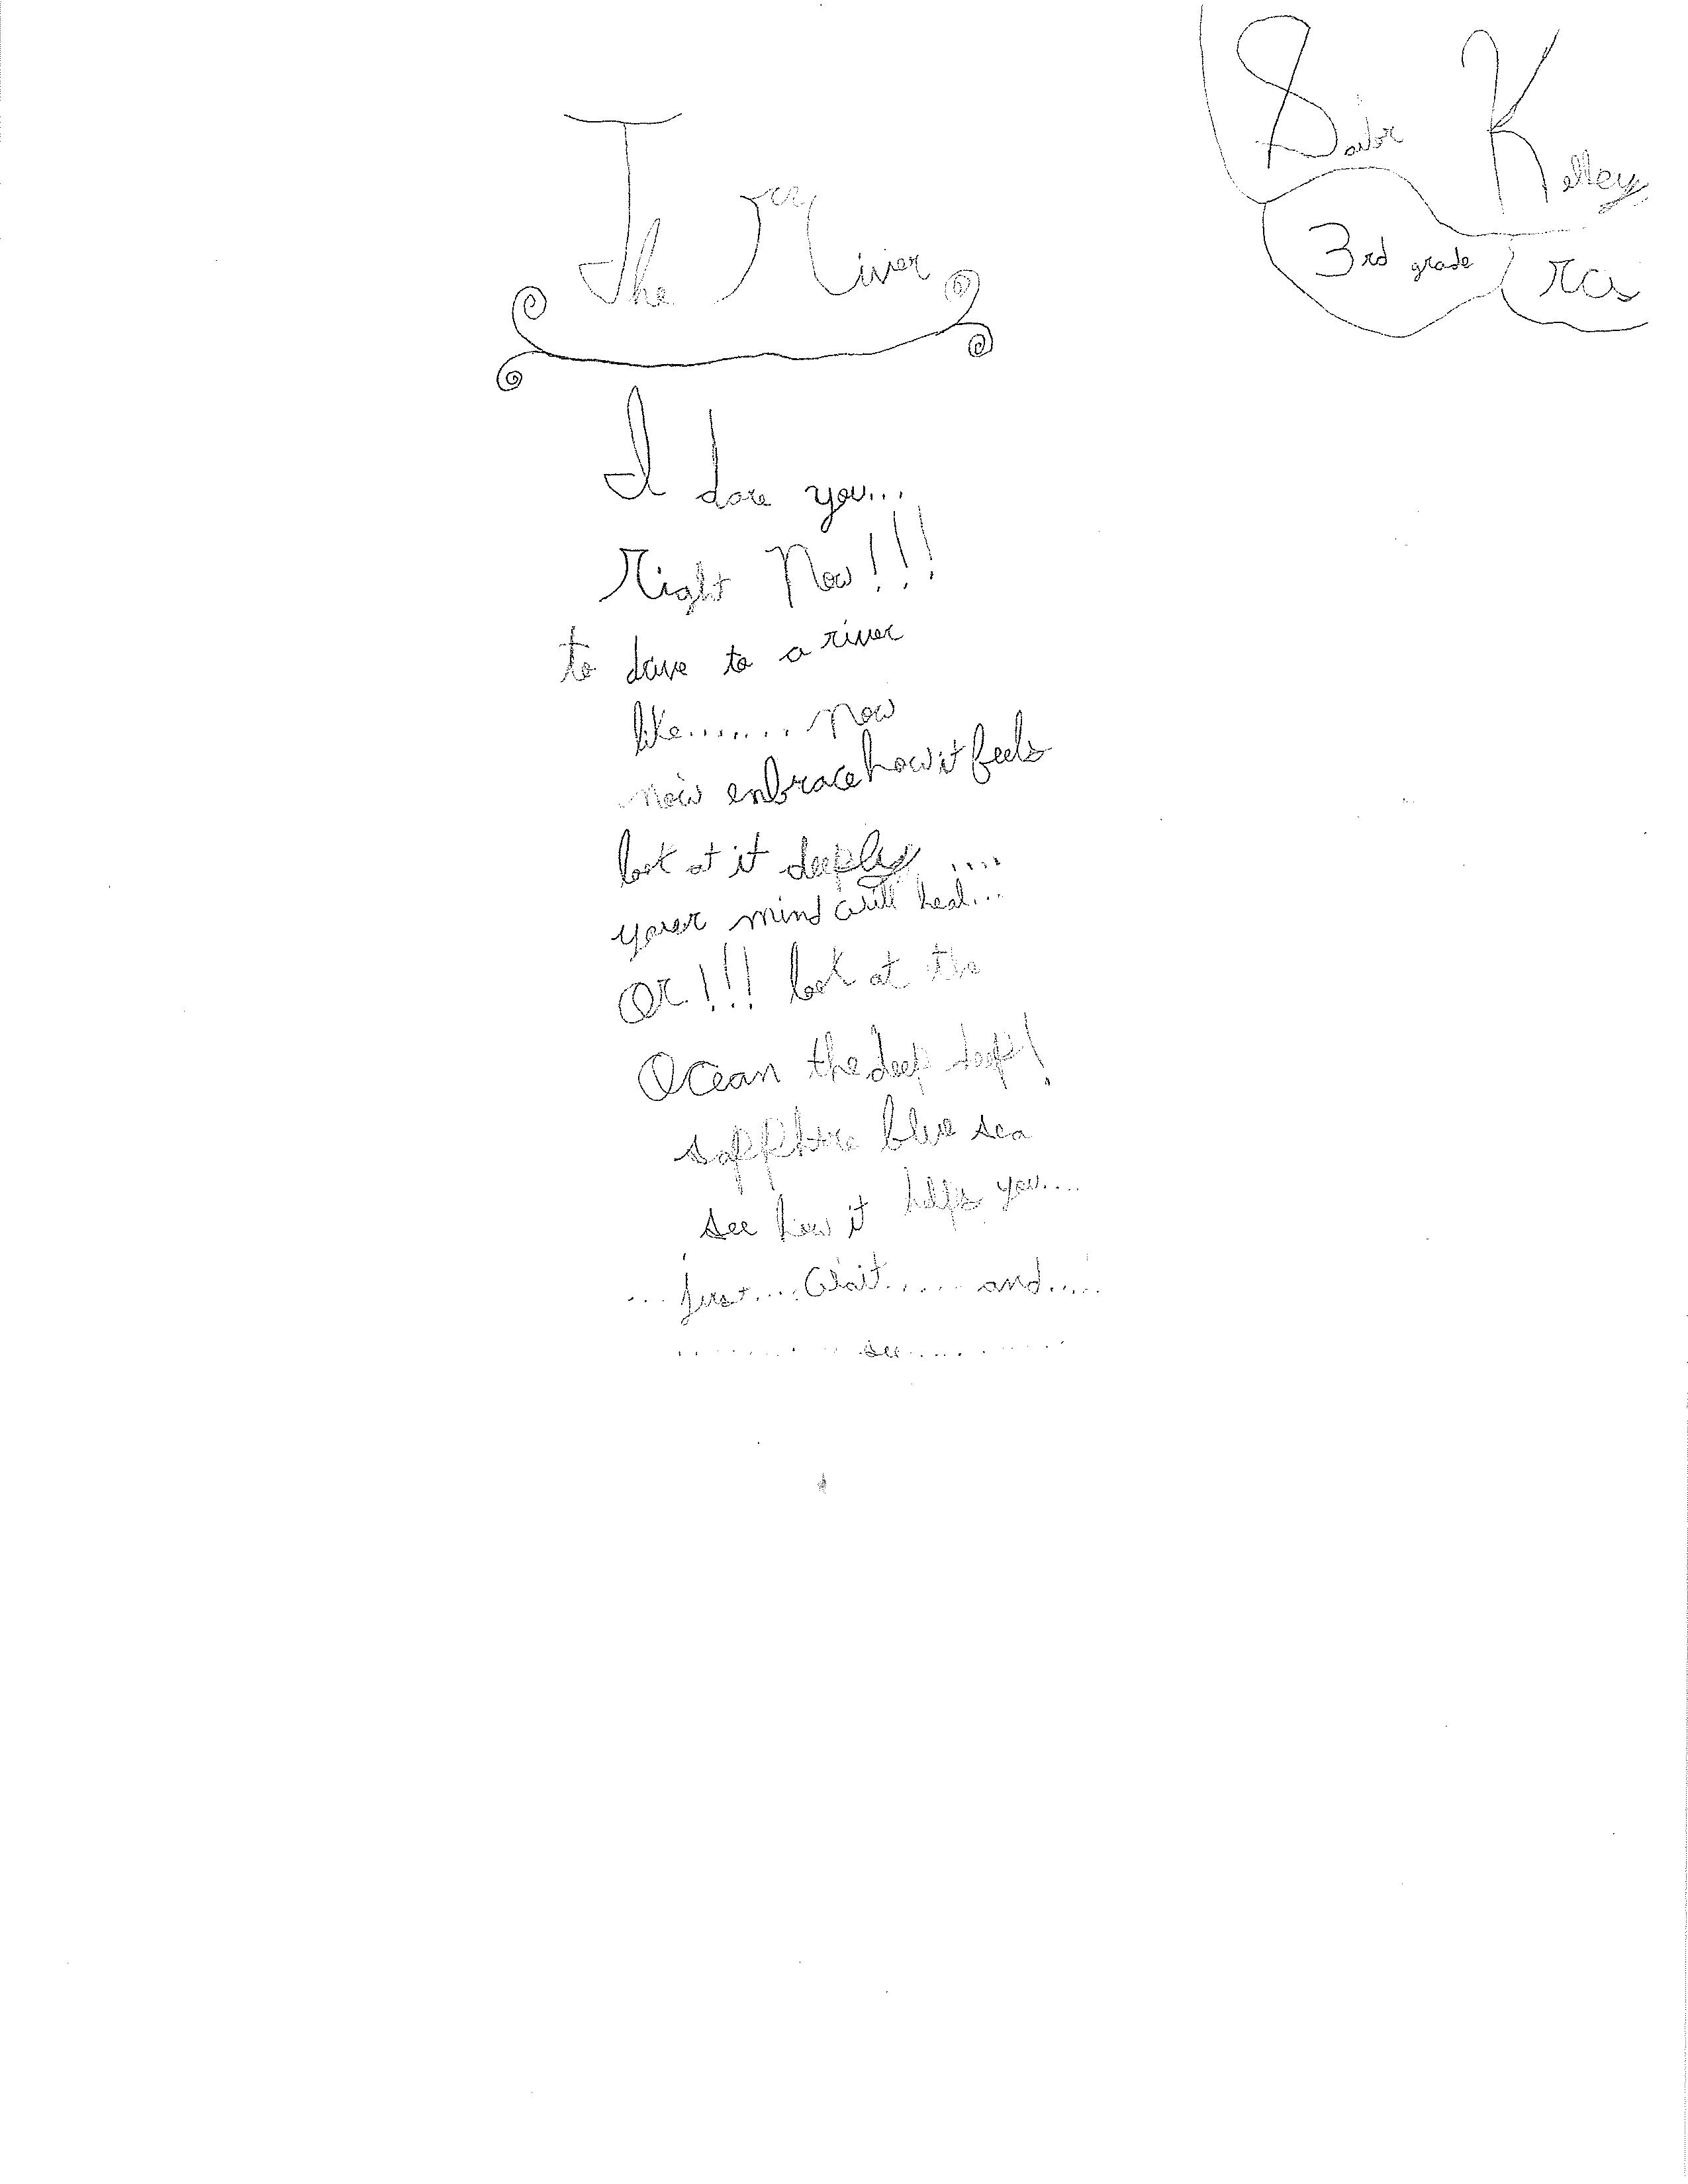 Sailor Kelley
3rd grade
RCS
The River
I dare you...
Right Now!!!
to drive to a river
like....... now
now enbrace how it feels
look at it deeply ....
your mind will heal...
Or!!! look at the
Ocean the deep deep!
sapphire blue sea
see how it helps you....
... just.... Wait..... and.....
.......... see ..........